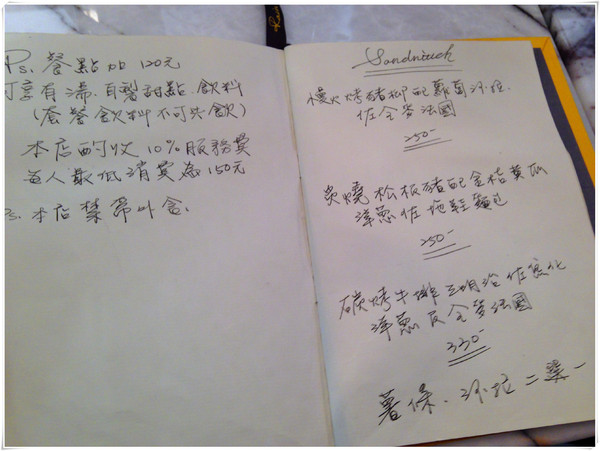 Ps. 餐點加 120元
可享有湯.自製甜點.飲料
(套餐飲料不可共飲)
本店酌收 10% 服務費
每人最低消費為150元
Ps. 本店禁帶外食.
Sandwich
慢火烤豬柳配蘿蔔沙拉
佐全麥法國
250-
炭燒松板豬配金桔黃瓜
洋蔥佐拖鞋麵包
250-
碳烤牛排三明治佐焦化
洋蔥及全麥法國
330-
薯條.沙拉二選一